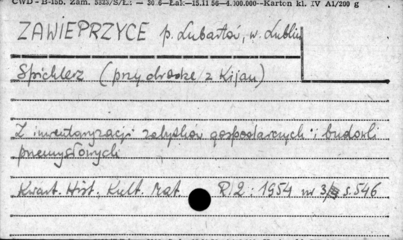 CWD - B-15b. Zam. 5323/S/Ł: — 30.6—Łak.—15.11 56—4.300.000—Karton kl. IV A1/200 g
ZAWIEPRZYCE p. Lubartów, w. Lublin
Spichlerz (przy drodze z Kijan)
Z inwentaryzacji zabytków gospodarczych i budowli
przemysłowych
Kwart. Hist. Kult. Mat. R.2: 1954 nr 3/ s.546